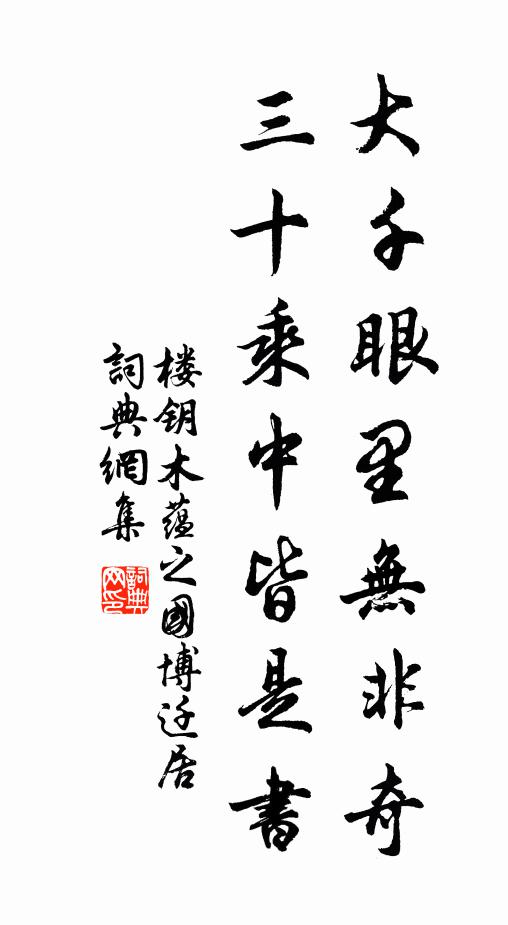 大千眼里無非奇
三十乘中皆是書
楼钥木蕴之國博迁居
詞典網集
詞典網印